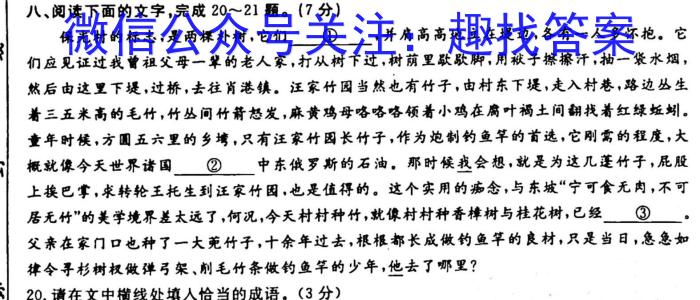 八、阅读下面的文字,完成20～21题。(7分)
微信公众号关注：趣找答案
保 村的标志,是两棵朴树,它们 ① 并肩高高 在堤边,各有一人多怀抱。它
们应见证过我曾祖父母一辈的老人家,打从树下过,树荫里歇歇脚,用袄子擦擦汗,抽一袋水烟,
然后由这里下堤,过桥,去往肖港镇。汪家竹园当然也有竹子,由村东下堤,走入村巷,路边丛生
着三五米高的毛竹,竹丛间竹箭怒发,麻黄鸡母咯咯咯领着小鸡在腐叶褐土间翻找着红绿蚯蚓。
童年时候,方圆五六里的乡塆,只有汪家竹园长竹子,作为炮制钓鱼竿的首选,它刚需的程度,大
概就像今天世界诸国 ② 中东俄罗斯的石油。那时候我会想,就是为这几蓬竹子,屁股
上挨巴掌,求转轮王托生到汪家竹园,也是值得的。这个实用的痴念,与东坡“宁可食无肉,不可
居无竹”的美学境界差太远了,何况,今天村村种竹,就像村村种香樟树与桂花树,已经 ③ 。
父亲在家门口也种了一大蔸竹子,十余年过去,根根都长成做钓鱼竿的良材,只是当日,急急如
律令寻杉树杈做弹弓架、削毛竹条做钓鱼竿的少年,他去了哪里?
20.请在文中横线处填入恰当的成语。(3分)